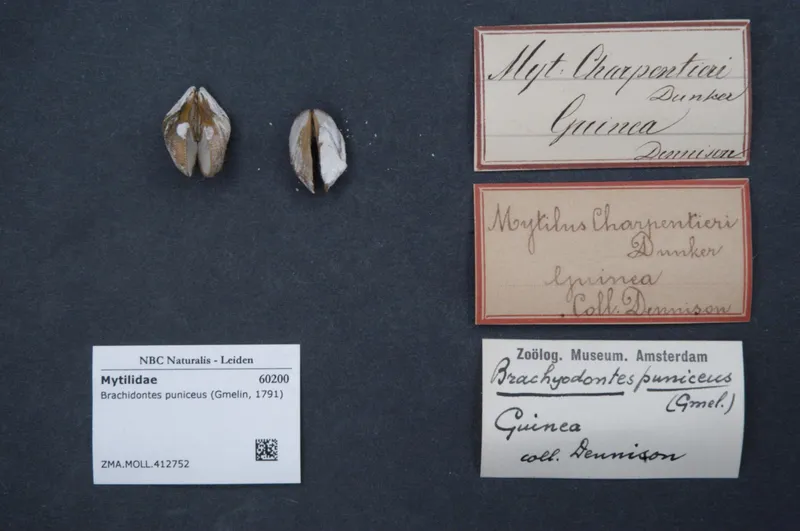 Myt. Charpentieri
Dunker
Guinea
Dennison
Mytilus Charpentieri
Dunker
Guinea
Coll. Dennison
NBC Naturalis - Leiden
Mytilidae 60200
Brachidontes puniceus (Gmelin, 1791)
ZMA.MOLL.412752
Zoölog. Museum. Amsterdam
Brachyodontes puniceus
(Gmel.)
Guinea
coll. Dennison